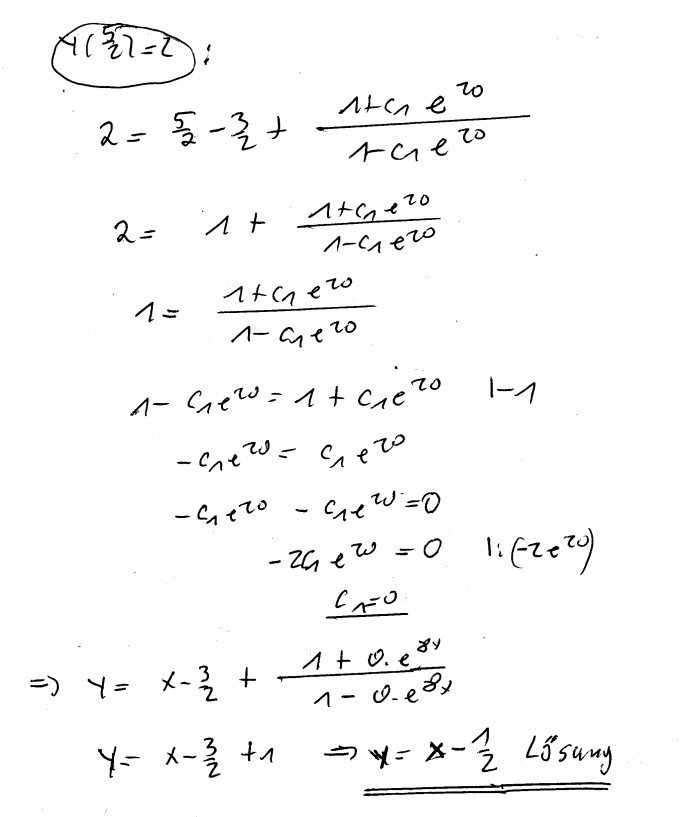 y(5/2) = 2 :
2 = 5/2 - 3/2 + (1+c₁e²⁰)/(1-c₁e²⁰)
2 = 1 + (1+c₁e²⁰)/(1-c₁e²⁰)
1 = (1+c₁e²⁰)/(1-c₁e²⁰)
1 - c₁e²⁰ = 1 + c₁e²⁰ |-1
-c₁e²⁰ = c₁e²⁰
-c₁e²⁰ - c₁e²⁰ = 0
-2c₁e²⁰ = 0 |:(-2e²⁰)
c₁=0
⇒ y = x - 3/2 + (1 + 0·e⁸ˣ)/(1 - 0·e⁸ˣ)
y = x - 3/2 + 1 ⇒ y = x - 1/2 Lösung